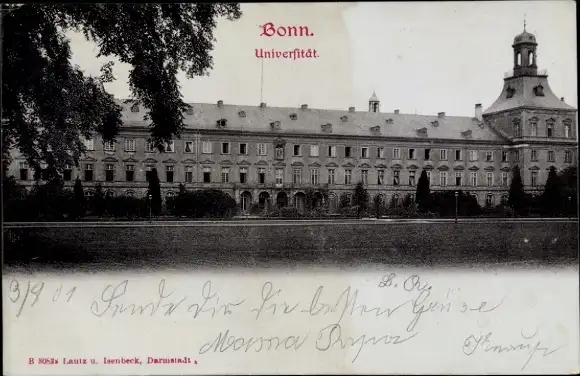 Bonn.
Universität.
3/9 01 Sende Dir Die besten Grüsse
Mama Papa
B 8083a Lautz u. Isenbeck, Darmstadt